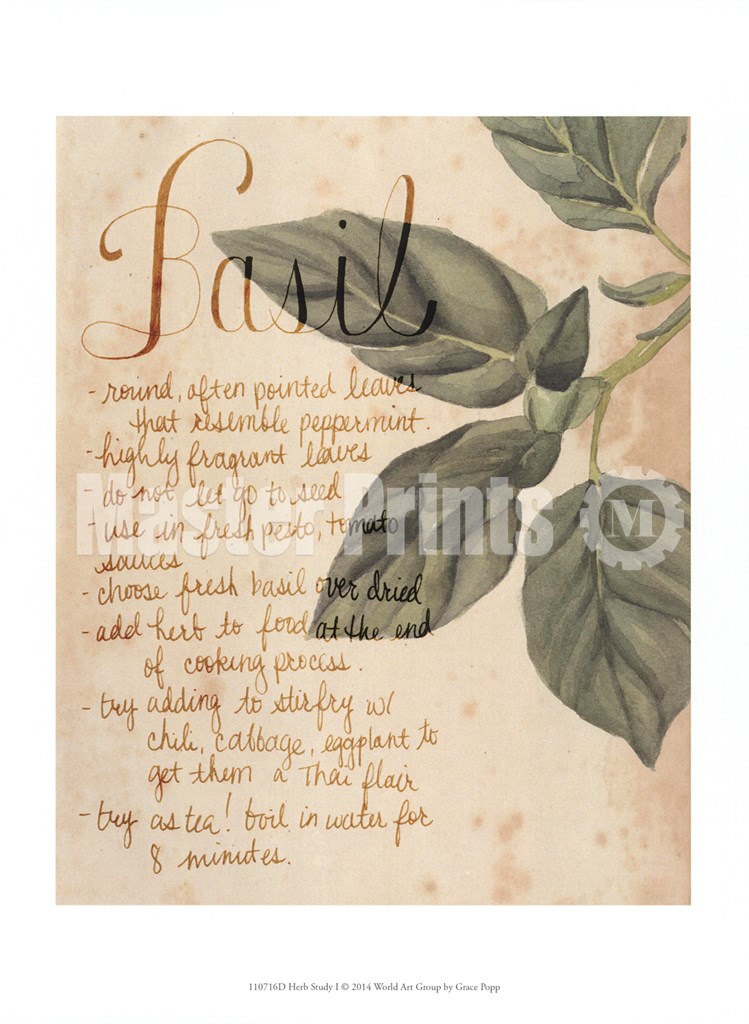 Basil
- round, often pointed leaves
that resemble peppermint.
- highly fragrant leaves
- do not let go to seed
- use in fresh pesto, tomato
sauces
- choose fresh basil over dried
- add herb to food at the end
of cooking process.
- try adding to stirfry w/
chili, cabbage, eggplant to
get them a Thai flair
- try as tea! boil in water for
8 minutes.
Master Prints M
110716D Herb Study I © 2014 World Art Group by Grace Popp